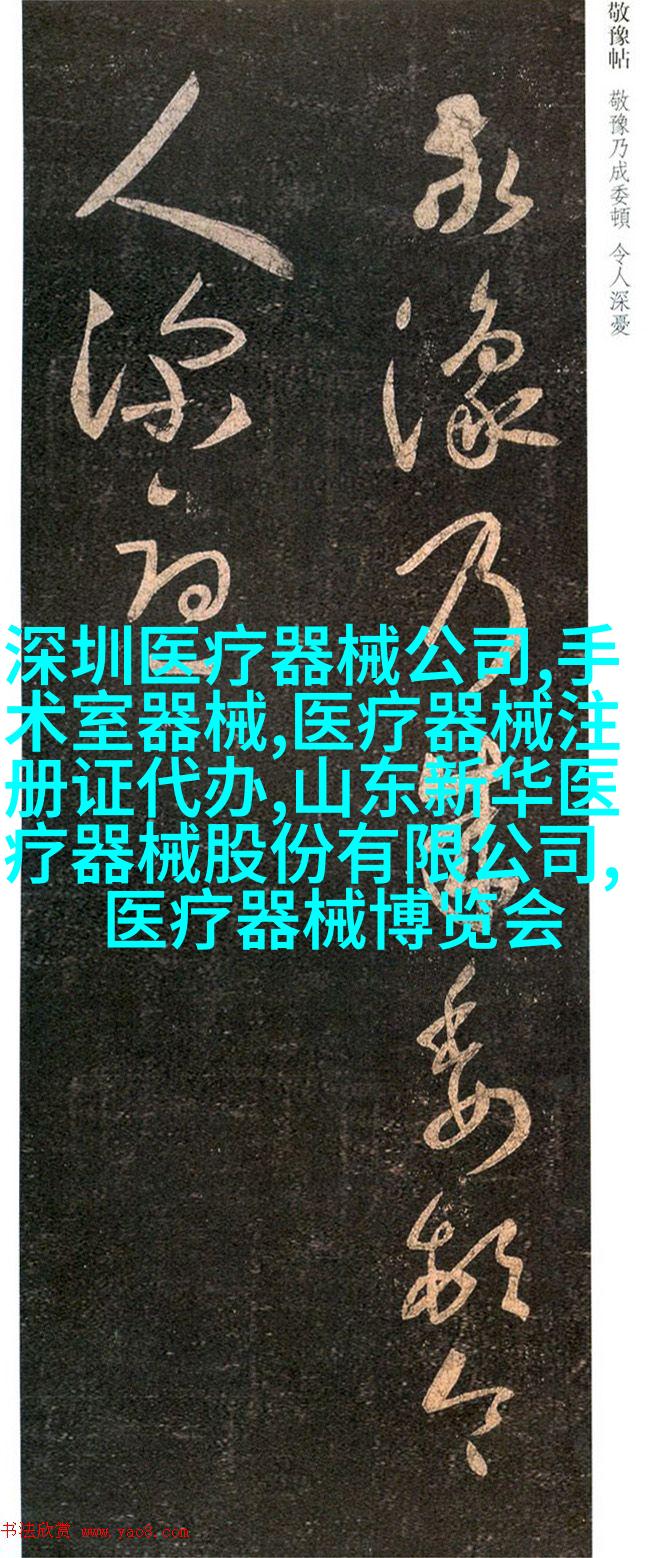 敬豫帖 敬豫乃成委頓 令人深憂
敬豫乃成委頓令
人深憂
深圳医疗器械公司,手
术室器械,医疗器械注
册证代办,山东新华医
疗器械股份有限公司,
医疗器械博览会
书法欣赏 www.yac8.com